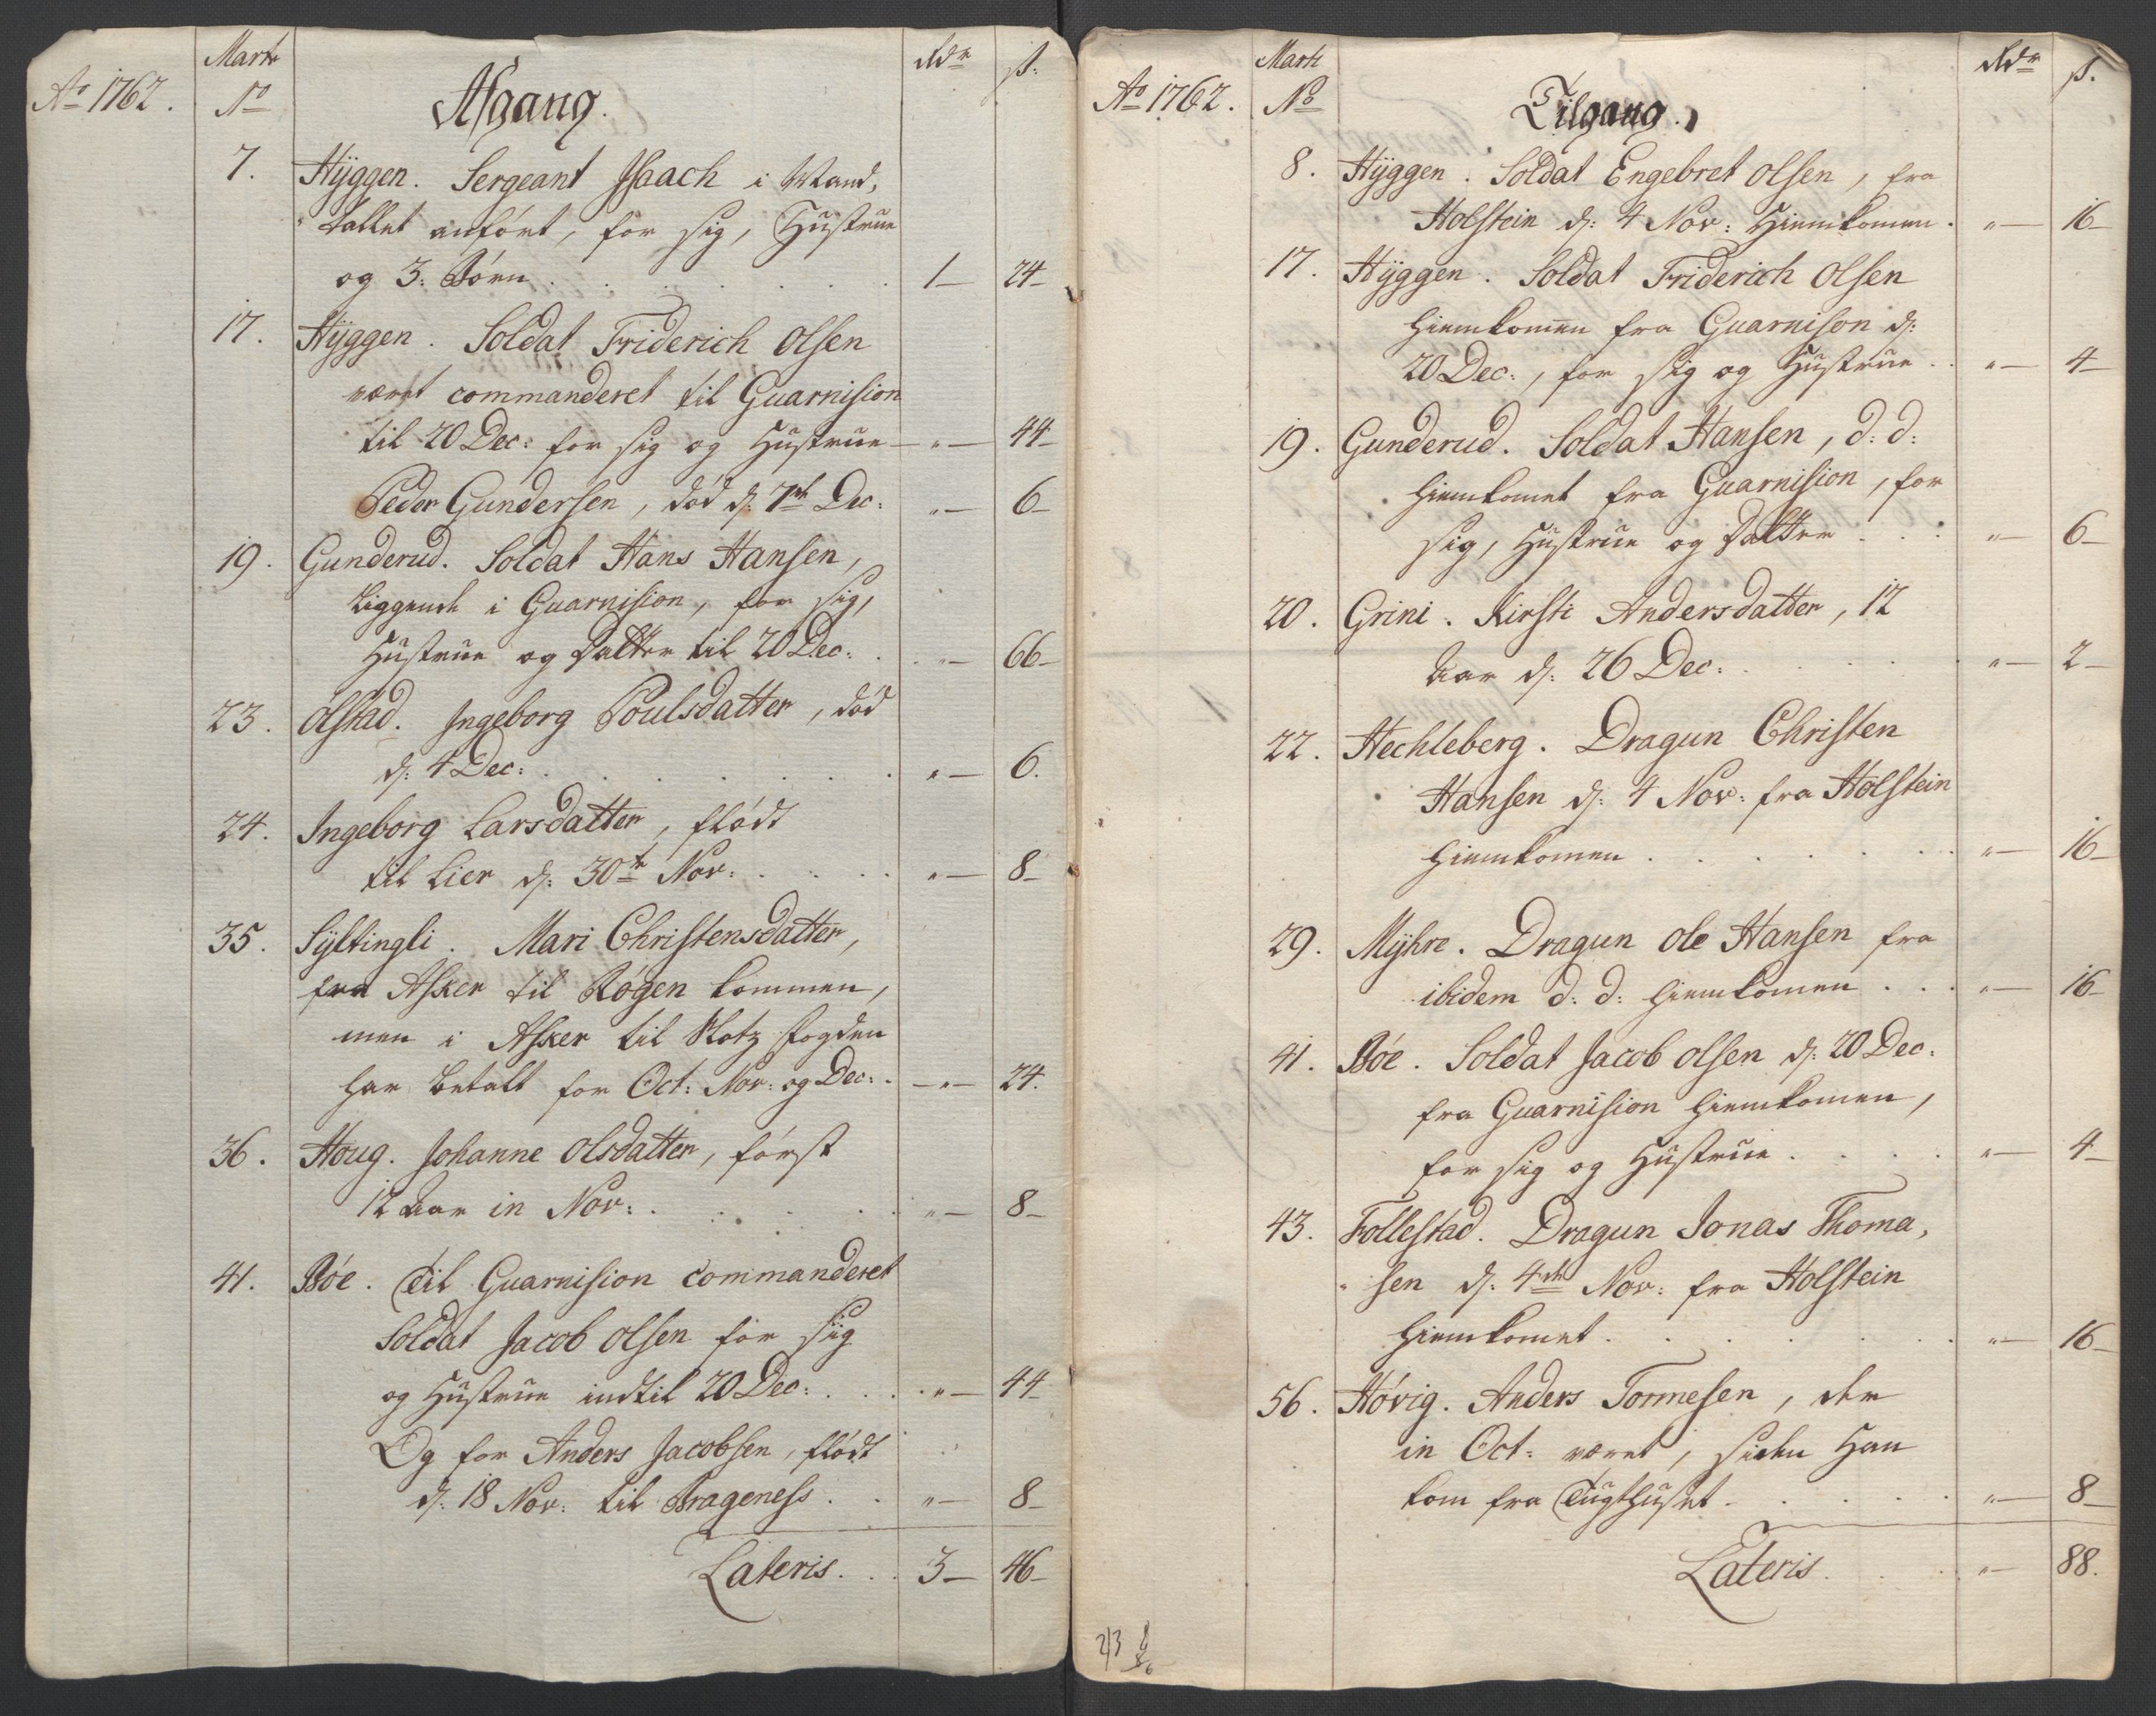 Ao 1762.
Matr
No
Afgang.
Rdr
s.
7. Hÿggen. Sergeant Isaach i Mand,
tallet anført, for sig, Hustrue
og 3: Børn . . . 1 — 24 —
17. Hÿggen. Soldat Friderich Olsen
været commanderet til Guarnision
til 20 Dec: for sig og Hustrue — „ — 44 —
Peder Gundersen, død d: 7de Dec: „ — 6 —
19. Gunderud. Soldat Hans Hansen,
Liggende i Guarnision, for sig,
Hustrue og Datter til 20 Dec: . „ — 66 —
23. Olstad. Ingeborg Poulsdatter, død
d: 4 Dec: . . . „ — 6.
24. Ingeborg Larsdatter, flødt
til Lier d: 30te Nov: . . . „ — 8 —
35. Sÿltingli. Mari Christensdatter,
fra Asker til Røgen kommen,
men i Asker til Slotz fogden
har betalt for Oct: Nov: og Dec: . — „ — 24.
36. Houg. Johanne Olsdatter, først
12 Aar in Nov: . . . „ — 8 —
41. Bøe. Til Guarnision commanderet
Soldat Jacob Olsen for sig
og Hustrue indtil 20 Dec: . . . „ — 44
Og for Anders Jacobsen, flødt
d: 18 Nov: til Brageness . . „ — 8 —
Lateris . . . 3 — 46 —
Ao 1762.
Matr
No
Tilgang.
Rdr
s.
8. Hÿggen. Soldat Engebret Olsen, fra
Holstein d: 4 Nov: Hiemkomen . „ — 16 —
17. Hÿggen. Soldat Friderich Olsen
hiemkomen fra Guarnison d:
20 Dec:, for sig og Hustrue . . „ — 4 —
19. Gunderud. Soldat Hansen, d: d:
hiemkomet fra Guarnision, for
sig, Hustrue og Datter . . . „ — 6 —
20. Grini. Kirsti Andersdatter, 12
Aar d: 26 Dec: . . . „ — 2 —
22. Hechleberg. Dragun Christen
Hansen d: 4 Nov: fra Holstein
hiemkomen . . . „ — 16 —
29. Mÿhre. Dragun Ole Hansen fra
ibidem d: d: hiemkomen . . . „ — 16 —
41. Bøe. Soldat Jacob Olsen d: 20 Dec:
fra Guarnision hiemkomen,
for sig og Hustrue . . . „ — 4 —
43. Follestad. Dragun Jonas Thoma,
sen d: 4de Nov: fra Holstein
hiemkomet . . . „ — 16 —
56. Høvig. Anders Tormesen, der
in Oct: været, siden Han
kom fra Tugthuset . . . „ — 8 —
Lateris . . . „ — 88.